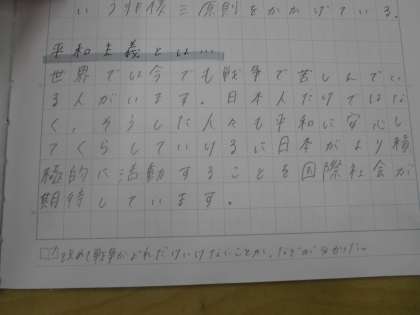 いう非核三原則をかかげている。
平和主義とは…
世界では今でも戦争で苦しんでい
る人がいます。日本人だけではな
く、そうした人々も平和に安心し
てくらしていけるに日本がより積
極的に活動することを国際社会が
期待しています。
改めて戦争がどれだけいけないことか、なぜかわかった。